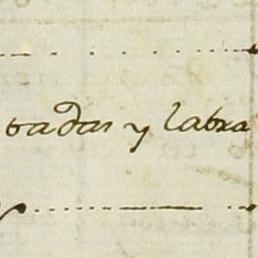 vadas y labra